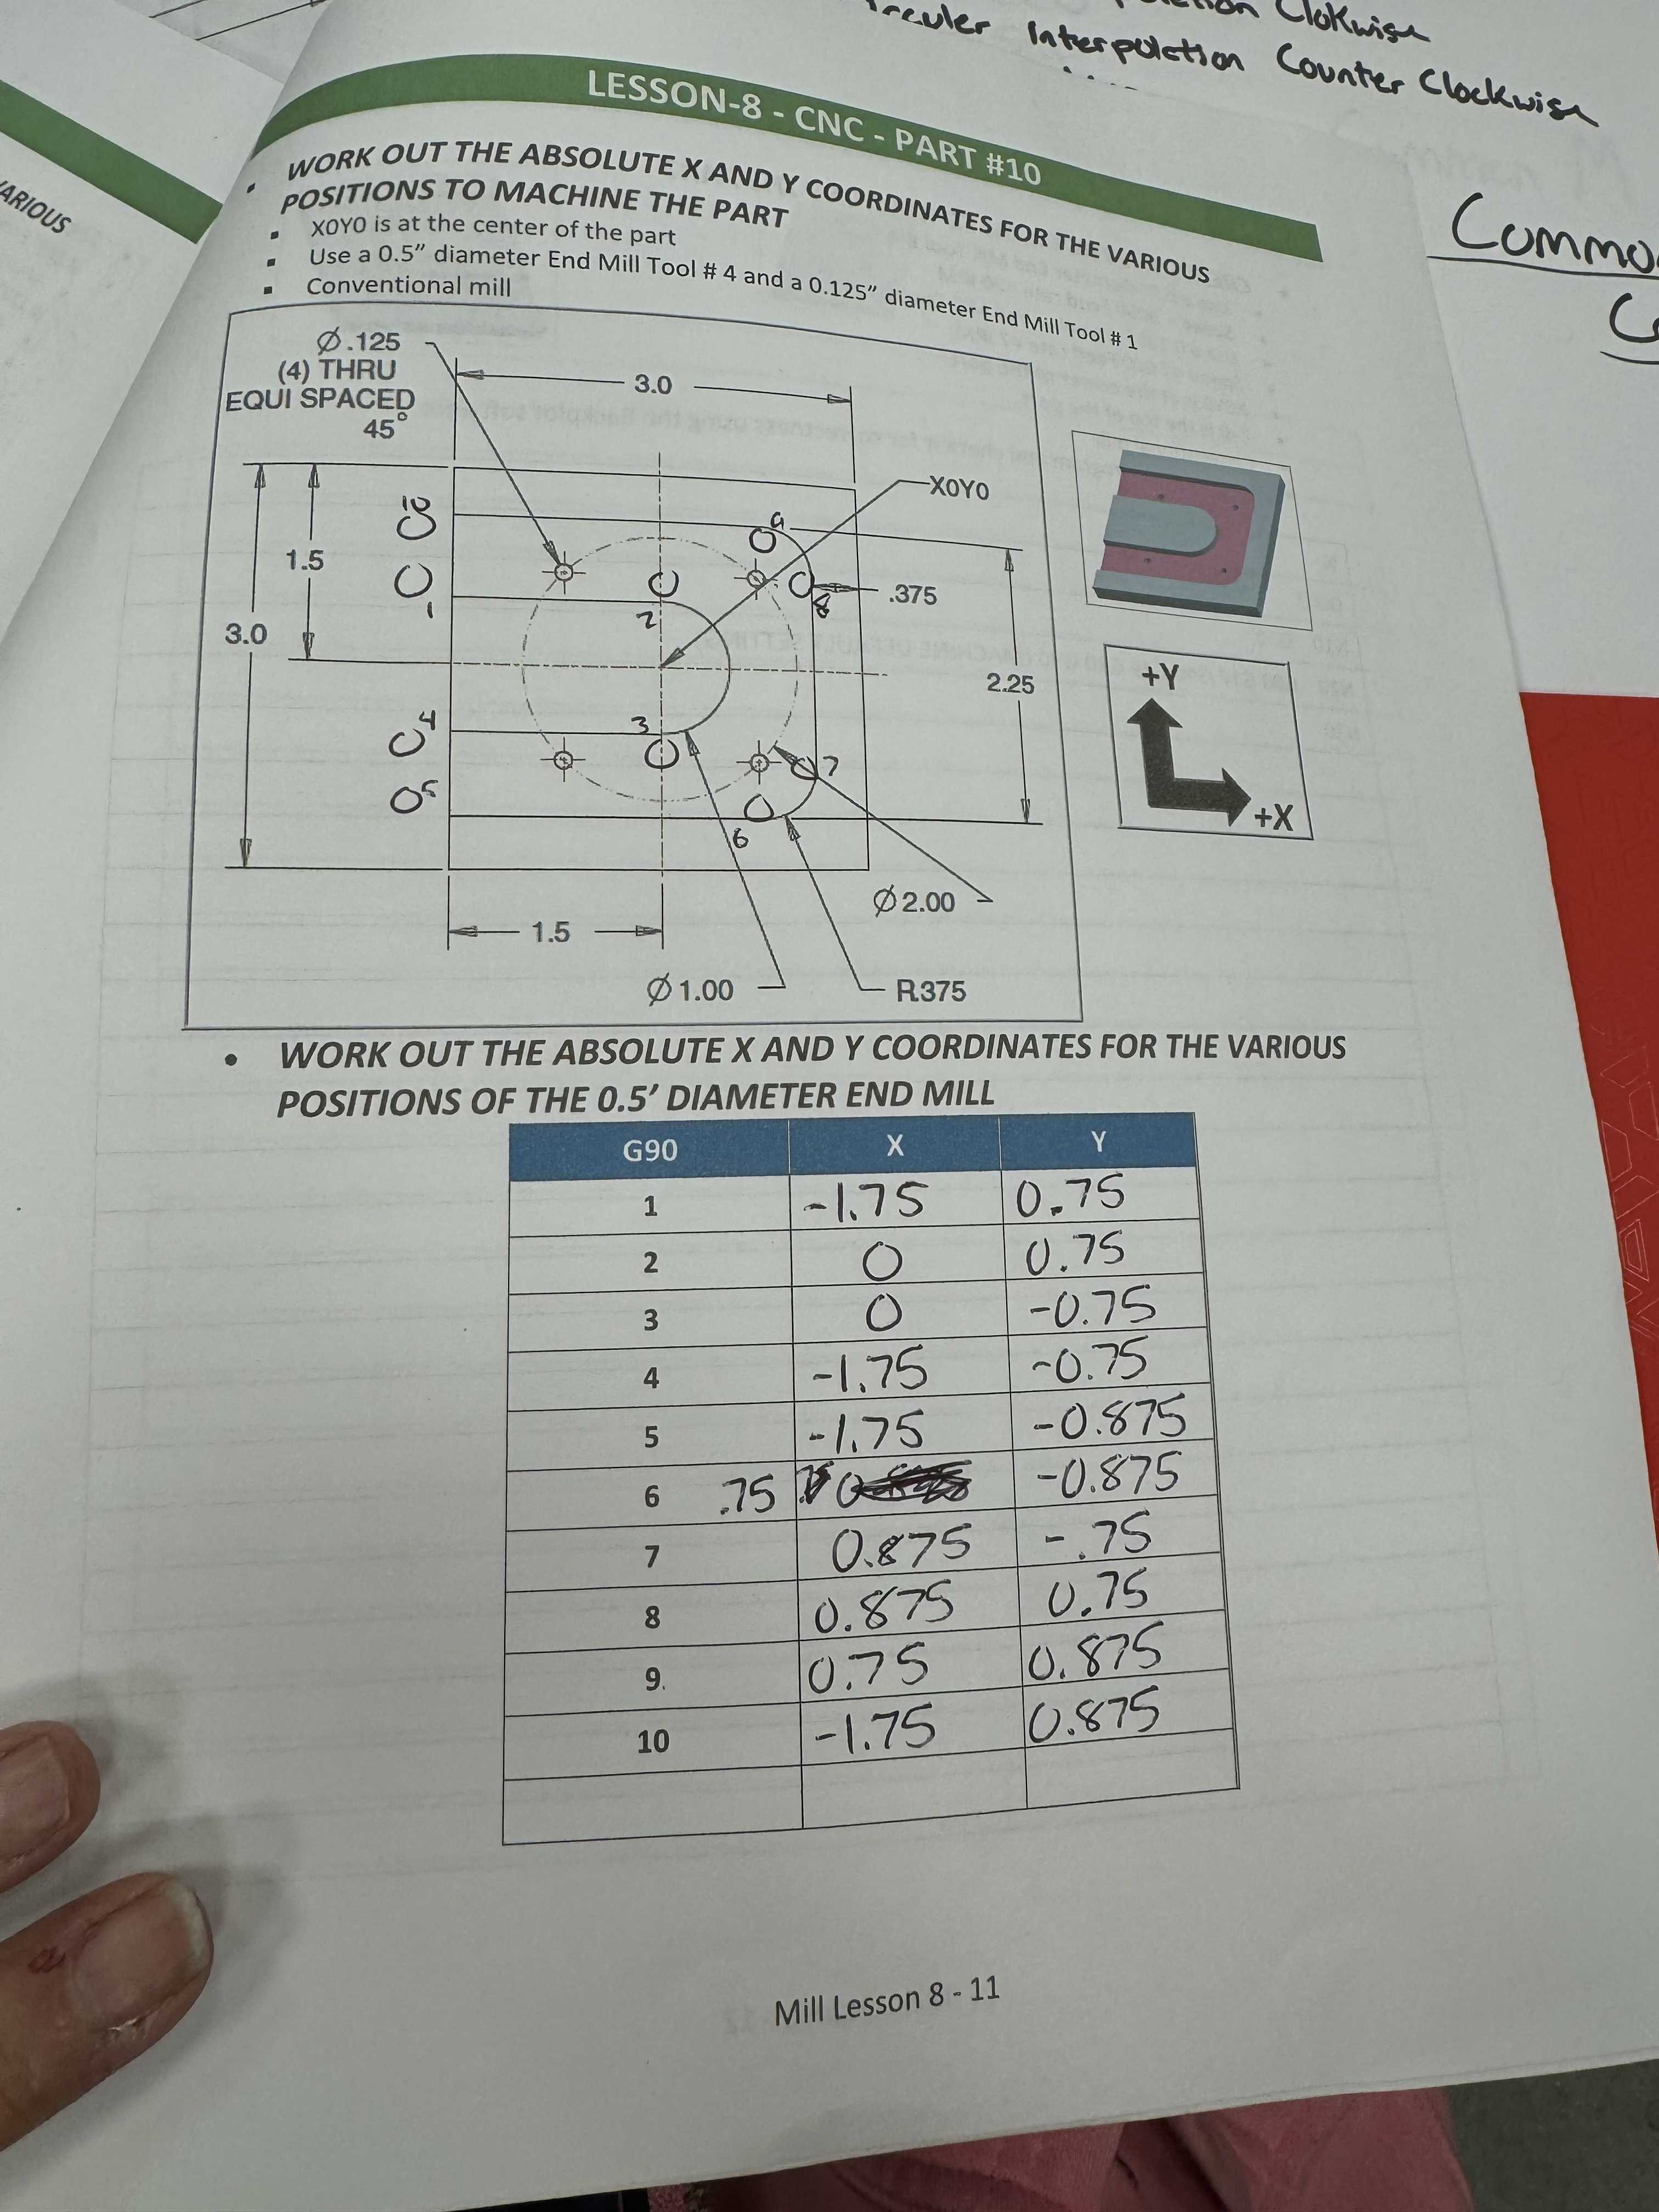 Clokwise
Interpolation Counter Clockwise
ARIOUS
LESSON-8 - CNC - PART #10
• WORK OUT THE ABSOLUTE X AND Y COORDINATES FOR THE VARIOUS
POSITIONS TO MACHINE THE PART
▪ X0Y0 is at the center of the part
▪ Use a 0.5” diameter End Mill Tool # 4 and a 0.125” diameter End Mill Tool # 1
▪ Conventional mill
Ø.125
(4) THRU
EQUI SPACED
45°
3.0
X0Y0
10
9
1.5
1
2
8
.375
3.0
2.25
4
3
5
7
6
Ø2.00
1.5
Ø1.00
R.375
+Y
+X
• WORK OUT THE ABSOLUTE X AND Y COORDINATES FOR THE VARIOUS
POSITIONS OF THE 0.5’ DIAMETER END MILL
G90 X Y
1 -1.75 0.75
2 0 0.75
3 0 -0.75
4 -1.75 -0.75
5 -1.75 -0.875
6 .75 -0.875
7 0.875 -.75
8 0.875 0.75
9. 0.75 0.875
10 -1.75 0.875
Mill Lesson 8 - 11